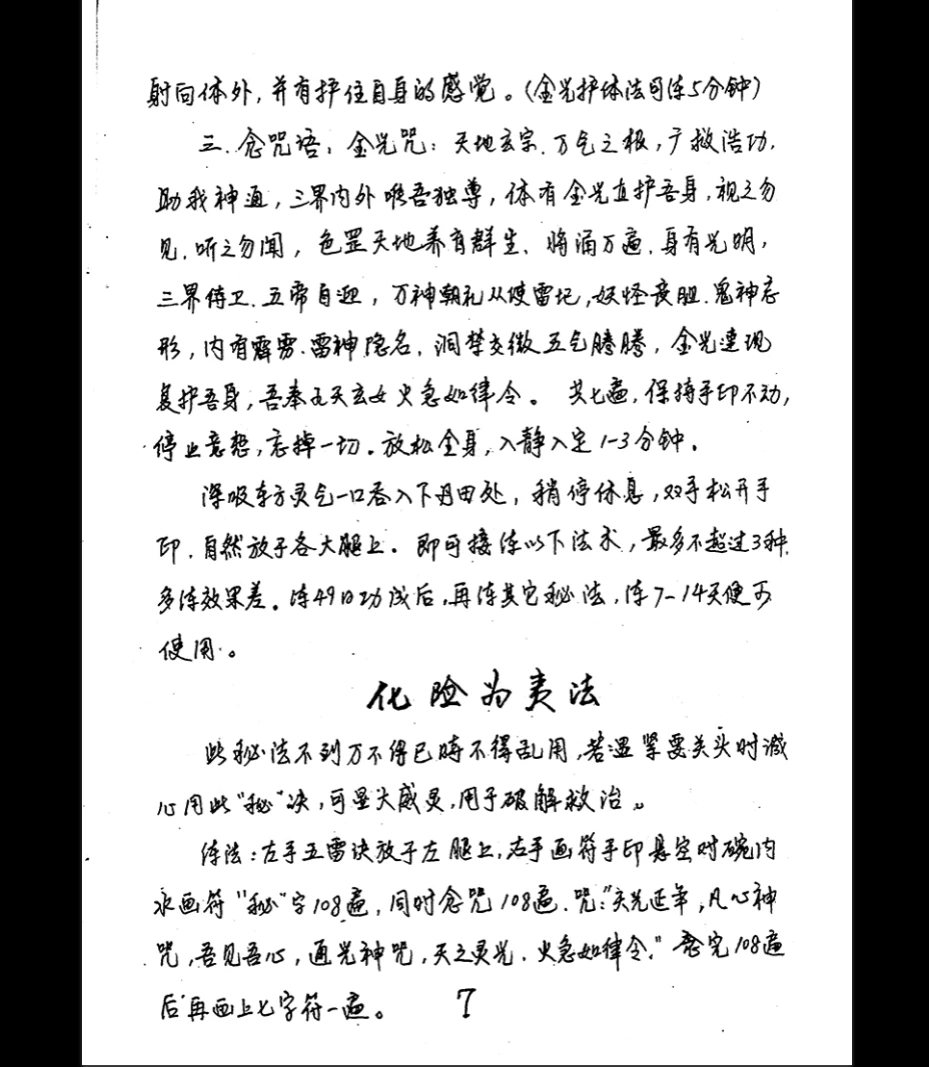 射向体外，并有护住自身的感觉。（金光护体法可练5分钟）
三．念咒语：金光咒：天地玄宗．万气之极，广救浩功，
助我神通，三界内外唯吾独尊，体有金光直护吾身，视之勿
见，听之勿闻，色罡天地养育群生．将涌万遍．身有光明，
三界侍卫．五帝自迎，万神朝礼从使雷圮，妖怪丧胆．鬼神忘
形，内有霹雳．雷神隐名，洞禁交徹五气腾腾，金光速现
复护吾身，吾奉九天玄女火急如律令。 共七遍，保持手印不动，
停止意想，忘掉一切．放松全身，入静入定1-3分钟．
深吸东方灵气一口吞入下丹田处，稍停休息，双手松开手
印．自然放于各大腿上．即可接练以下法术，最多不超过3种．
多练效果差。练49日功成后，再练其它秘法，练7-14天便可
使用。
化险为夷法
此秘法不到万不得已時不得乱用，若逢紧要关头时诚
心用此"秘"决，可显大威灵，用于破解救治。
练法：左手五雷诀放于左腿上，右手画符手印悬空对碗内
水画符"秘"字108遍，同时念咒108遍．咒："天光延年，凡心神
咒，吾见吾心，通光神咒，天之灵光．火急如律令．"念完108遍
后再画上七字符一遍。
7